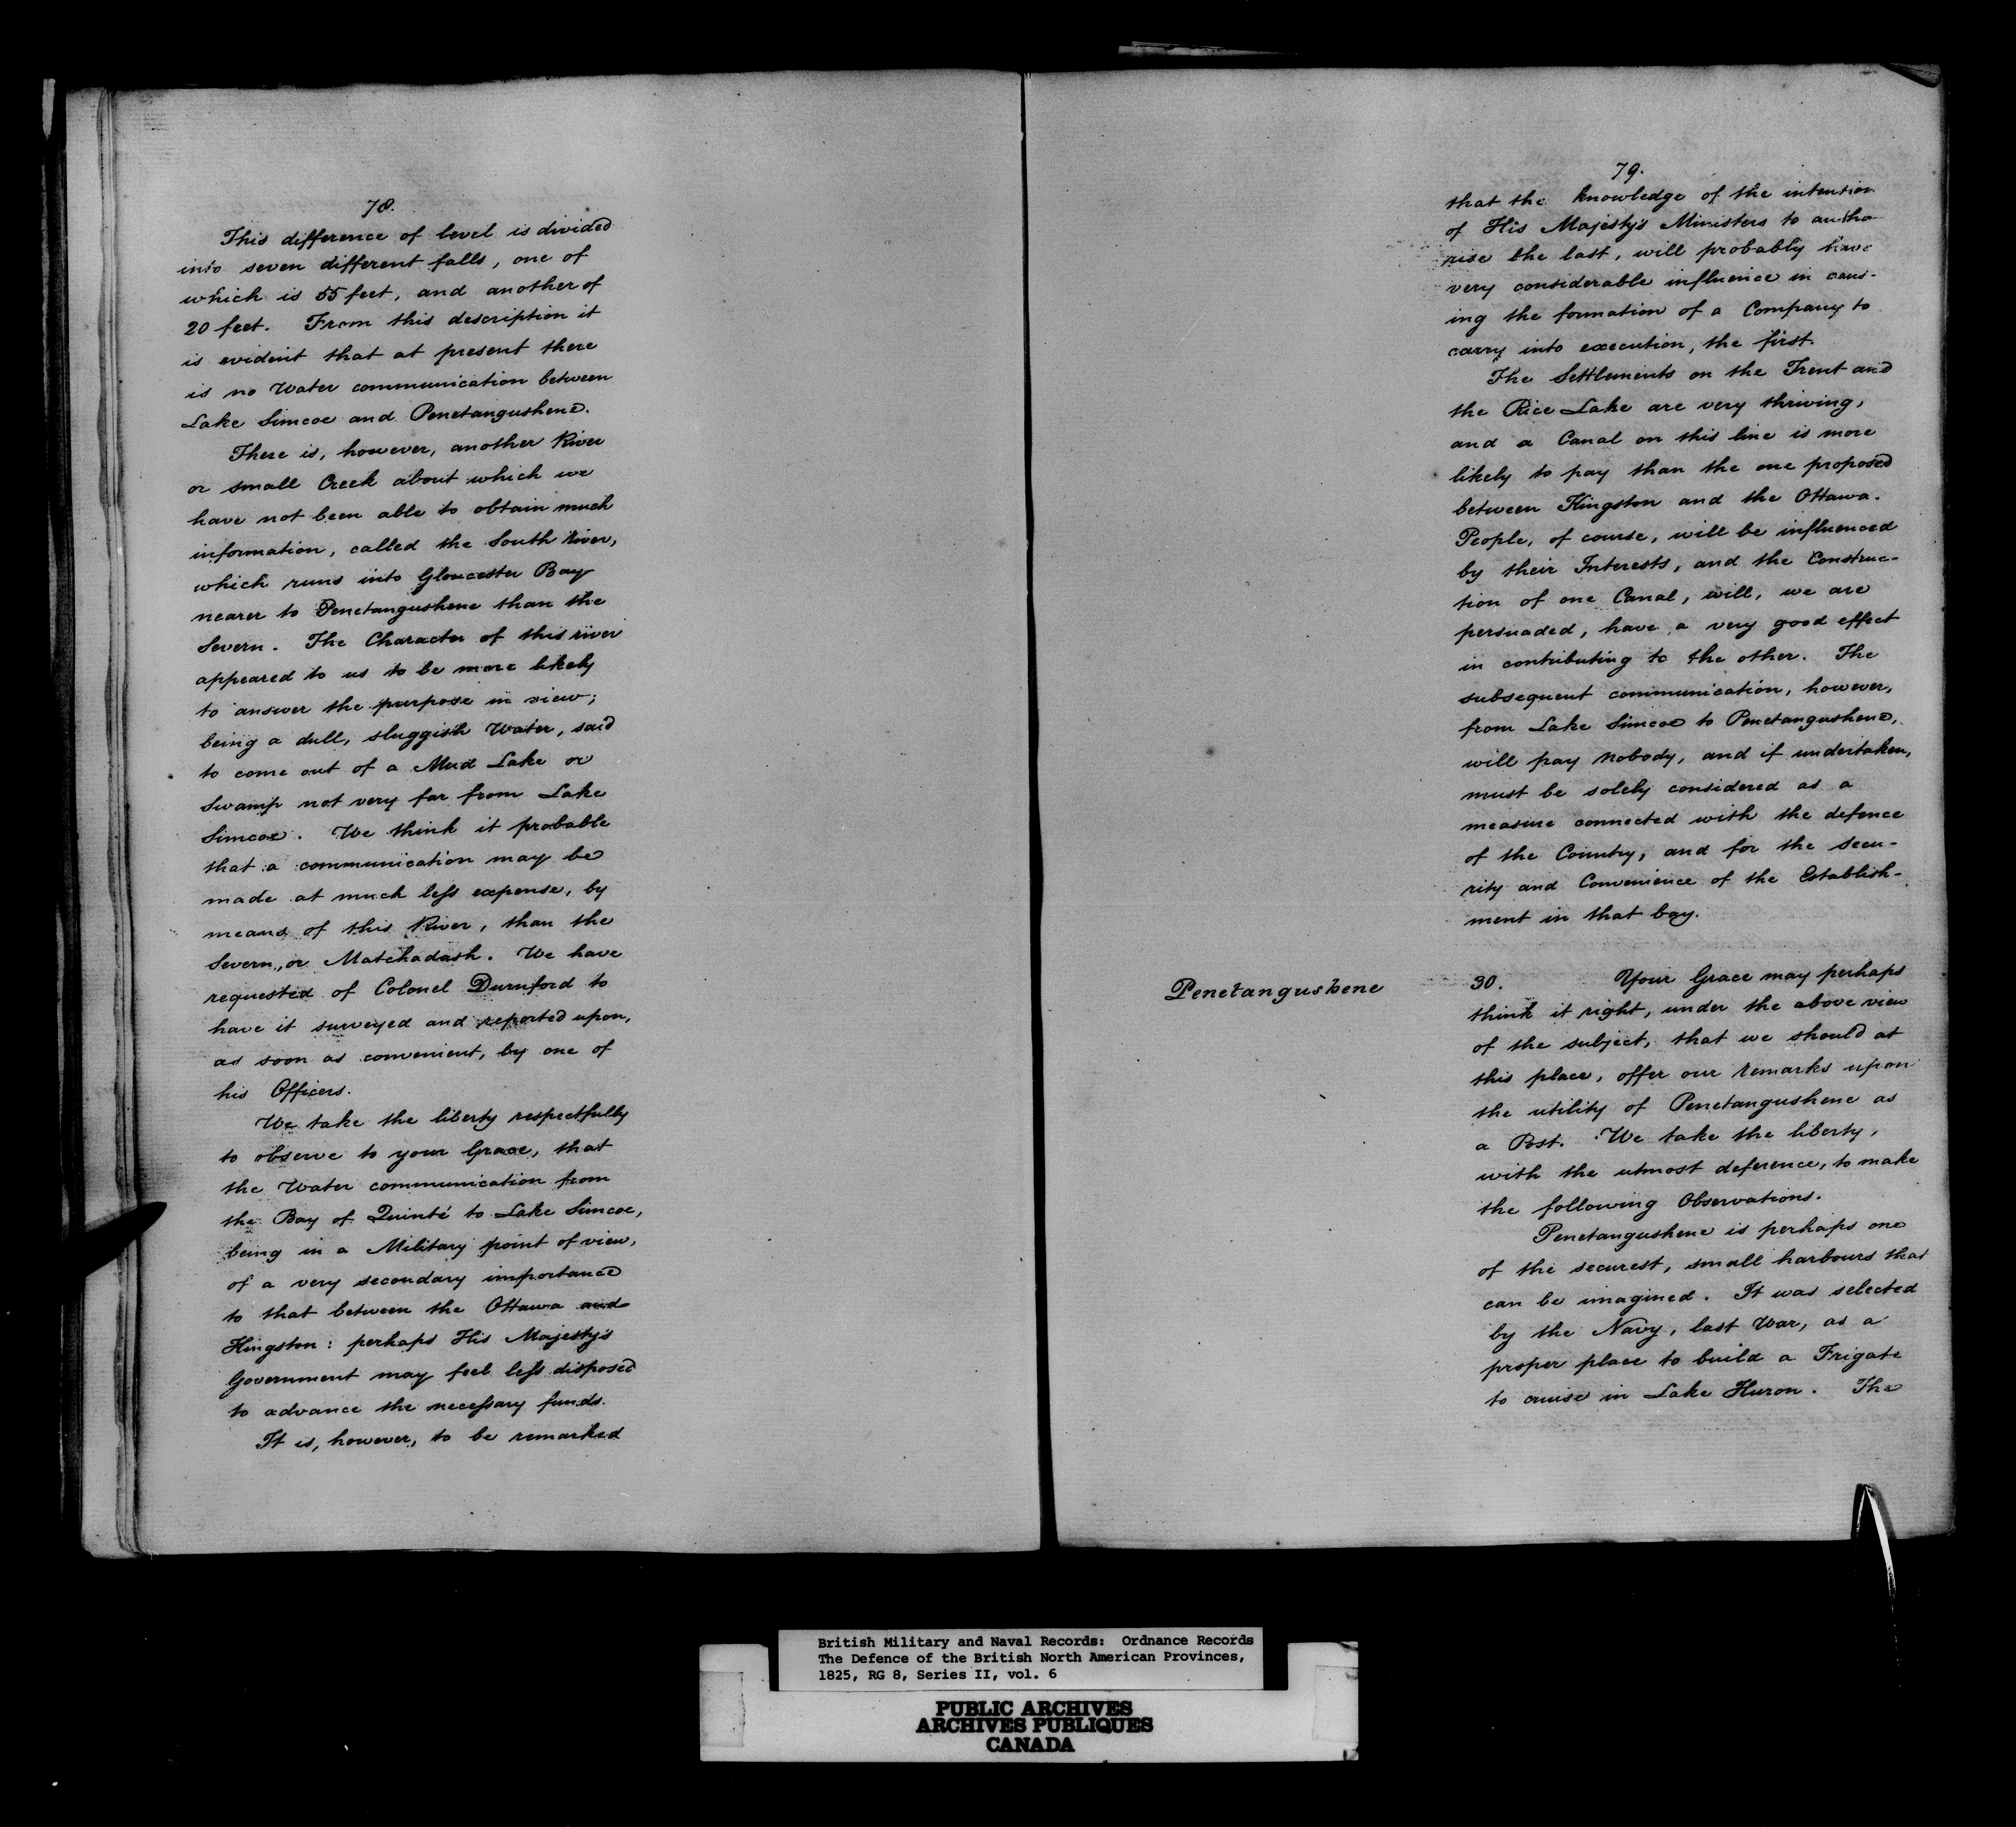 78.
This difference of level is divided
into seven different falls, one of
which is 55 feet, and another of
20 feet. From this description it
is evident that at present there
is no Water communication between
Lake Simcoe and Penetangushene.
There is, however, another River
or small Creek about which we
have not been able to obtain much
information, called the South River,
which runs into Gloucester Bay
nearer to Penetangushene than the
Severn. The Character of this river
appeared to us to be more likely
to answer the purpose in view;
being a dull, sluggish Water, said
to come out of a Mud Lake or
Swamp not very far from Lake
Simcoe. We think it probable
that a communication may be
made at much less expense, by
means of this River, than the
Severn, or Matchadash. We have
requested of Colonel Durnford to
have it surveyed and reported upon,
as soon as convenient, by one of
his Officers.
We take the liberty respectfully
to observe to your Grace, that
the Water communication from
the Bay of Quinté to Lake Simcoe,
being in a Military point of view,
of a very secondary importance
to that between the Ottawa and
Kingston: perhaps His Majesty's
Government may feel less disposed
to advance the necessary funds.
It is, however, to be remarked
79.
that the knowledge of the intention
of His Majesty's Ministers to autho
rise the last, will probably have
very considerable influence in caus-
ing the formation of a Company to
carry into execution, the first.
The Settlements on the Trent and
the Rice Lake are very thriving,
and a Canal on this line is more
likely to pay than the one proposed
between Kingston and the Ottawa.
People, of course, will be influenced
by their Interests, and the Construc-
tion of one Canal, will, we are
persuaded, have a very good effect
in contributing to the other. The
subsequent communication, however,
from Lake Simcoe to Penetangushene,
will pay nobody, and if undertaken,
must be solely considered as a
measure connected with the defence
of the Country, and for the secu-
rity and Convenience of the Establish-
ment in that bay.
Penetangushene
30. Your Grace may perhaps
think it right, under the above view
of the subject, that we should at
this place, offer our remarks upon
the utility of Penetangushene as
a Post. We take the liberty,
with the utmost deference, to make
the following Observations.
Penetangushene is perhaps one
of the securest, small harbours that
can be imagined. It was selected
by the Navy, last War, as a
proper place to build a Frigate
to cruise in Lake Huron. The
British Military and Naval Records: Ordnance Records
The Defence of the British North American Provinces,
1825, RG 8, Series II, vol. 6
PUBLIC ARCHIVES
ARCHIVES PUBLIQUES
CANADA